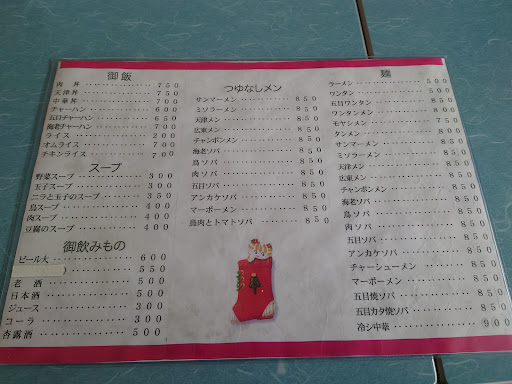 御飯
肉丼 ・・・・・・・・・・ 750
天津丼 ・・・・・・・・・・ 750
中華丼 ・・・・・・・・・・ 700
チャーハン ・・・・・・・・ 600
五目チャーハン ・・・・・・ 650
海老チャーハン ・・・・・・ 700
ライス ・・・・・・・・・・ 200
オムライス ・・・・・・・・ 700
チキンライス ・・・・・・・ 700
スープ
野菜スープ ・・・・・・・・ 300
玉子スープ ・・・・・・・・ 300
ニラと玉子のスープ ・・・・ 350
鳥スープ ・・・・・・・・・ 400
肉スープ ・・・・・・・・・ 400
豆腐のスープ ・・・・・・・ 400
御飲みもの
ビール大 ・・・・・・・・・ 600
) ・・・・・・・・・ 550
老酒 ・・・・・・・・・・ 500
日本酒 ・・・・・・・・・・ 500
ジュース ・・・・・・・・・ 300
コーラ ・・・・・・・・・・ 300
杏露酒 ・・・・・・・・・・ 500
つゆなしメン
サンマーメン ・・・・・・・ 850
ミソラーメン ・・・・・・・ 850
天津メン ・・・・・・・・・ 850
広東メン ・・・・・・・・・ 850
チャンポンメン ・・・・・・ 850
海老ソバ ・・・・・・・・・ 850
鳥ソバ ・・・・・・・・・ 850
肉ソバ ・・・・・・・・・ 850
五目ソバ ・・・・・・・・・ 850
アンカケソバ ・・・・・・・ 850
マーボーメン ・・・・・・・ 850
鳥肉とトマトソバ ・・・・・ 850
麺
ラーメン ・・・・・・・・・ 500
ワンタン ・・・・・・・・・ 500
五目ワンタン ・・・・・・・ 850
ワンタンメン ・・・・・・・ 800
モヤシメン ・・・・・・・・ 750
タンメン ・・・・・・・・・ 800
サンマーメン ・・・・・・・ 850
ミソラーメン ・・・・・・・ 850
天津メン ・・・・・・・・・ 850
広東メン ・・・・・・・・・ 850
チャンポンメン ・・・・・・ 850
海老ソバ ・・・・・・・・・ 850
鳥ソバ ・・・・・・・・・ 850
肉ソバ ・・・・・・・・・ 850
五目ソバ ・・・・・・・・・ 850
アンカケソバ ・・・・・・・ 850
チャーシューメン ・・・・・ 850
マーボーメン ・・・・・・・ 850
五目焼ソバ ・・・・・・・・ 850
五目カタ焼ソバ ・・・・・・ 850
冷シ中華 ・・・・・・・・・ 900